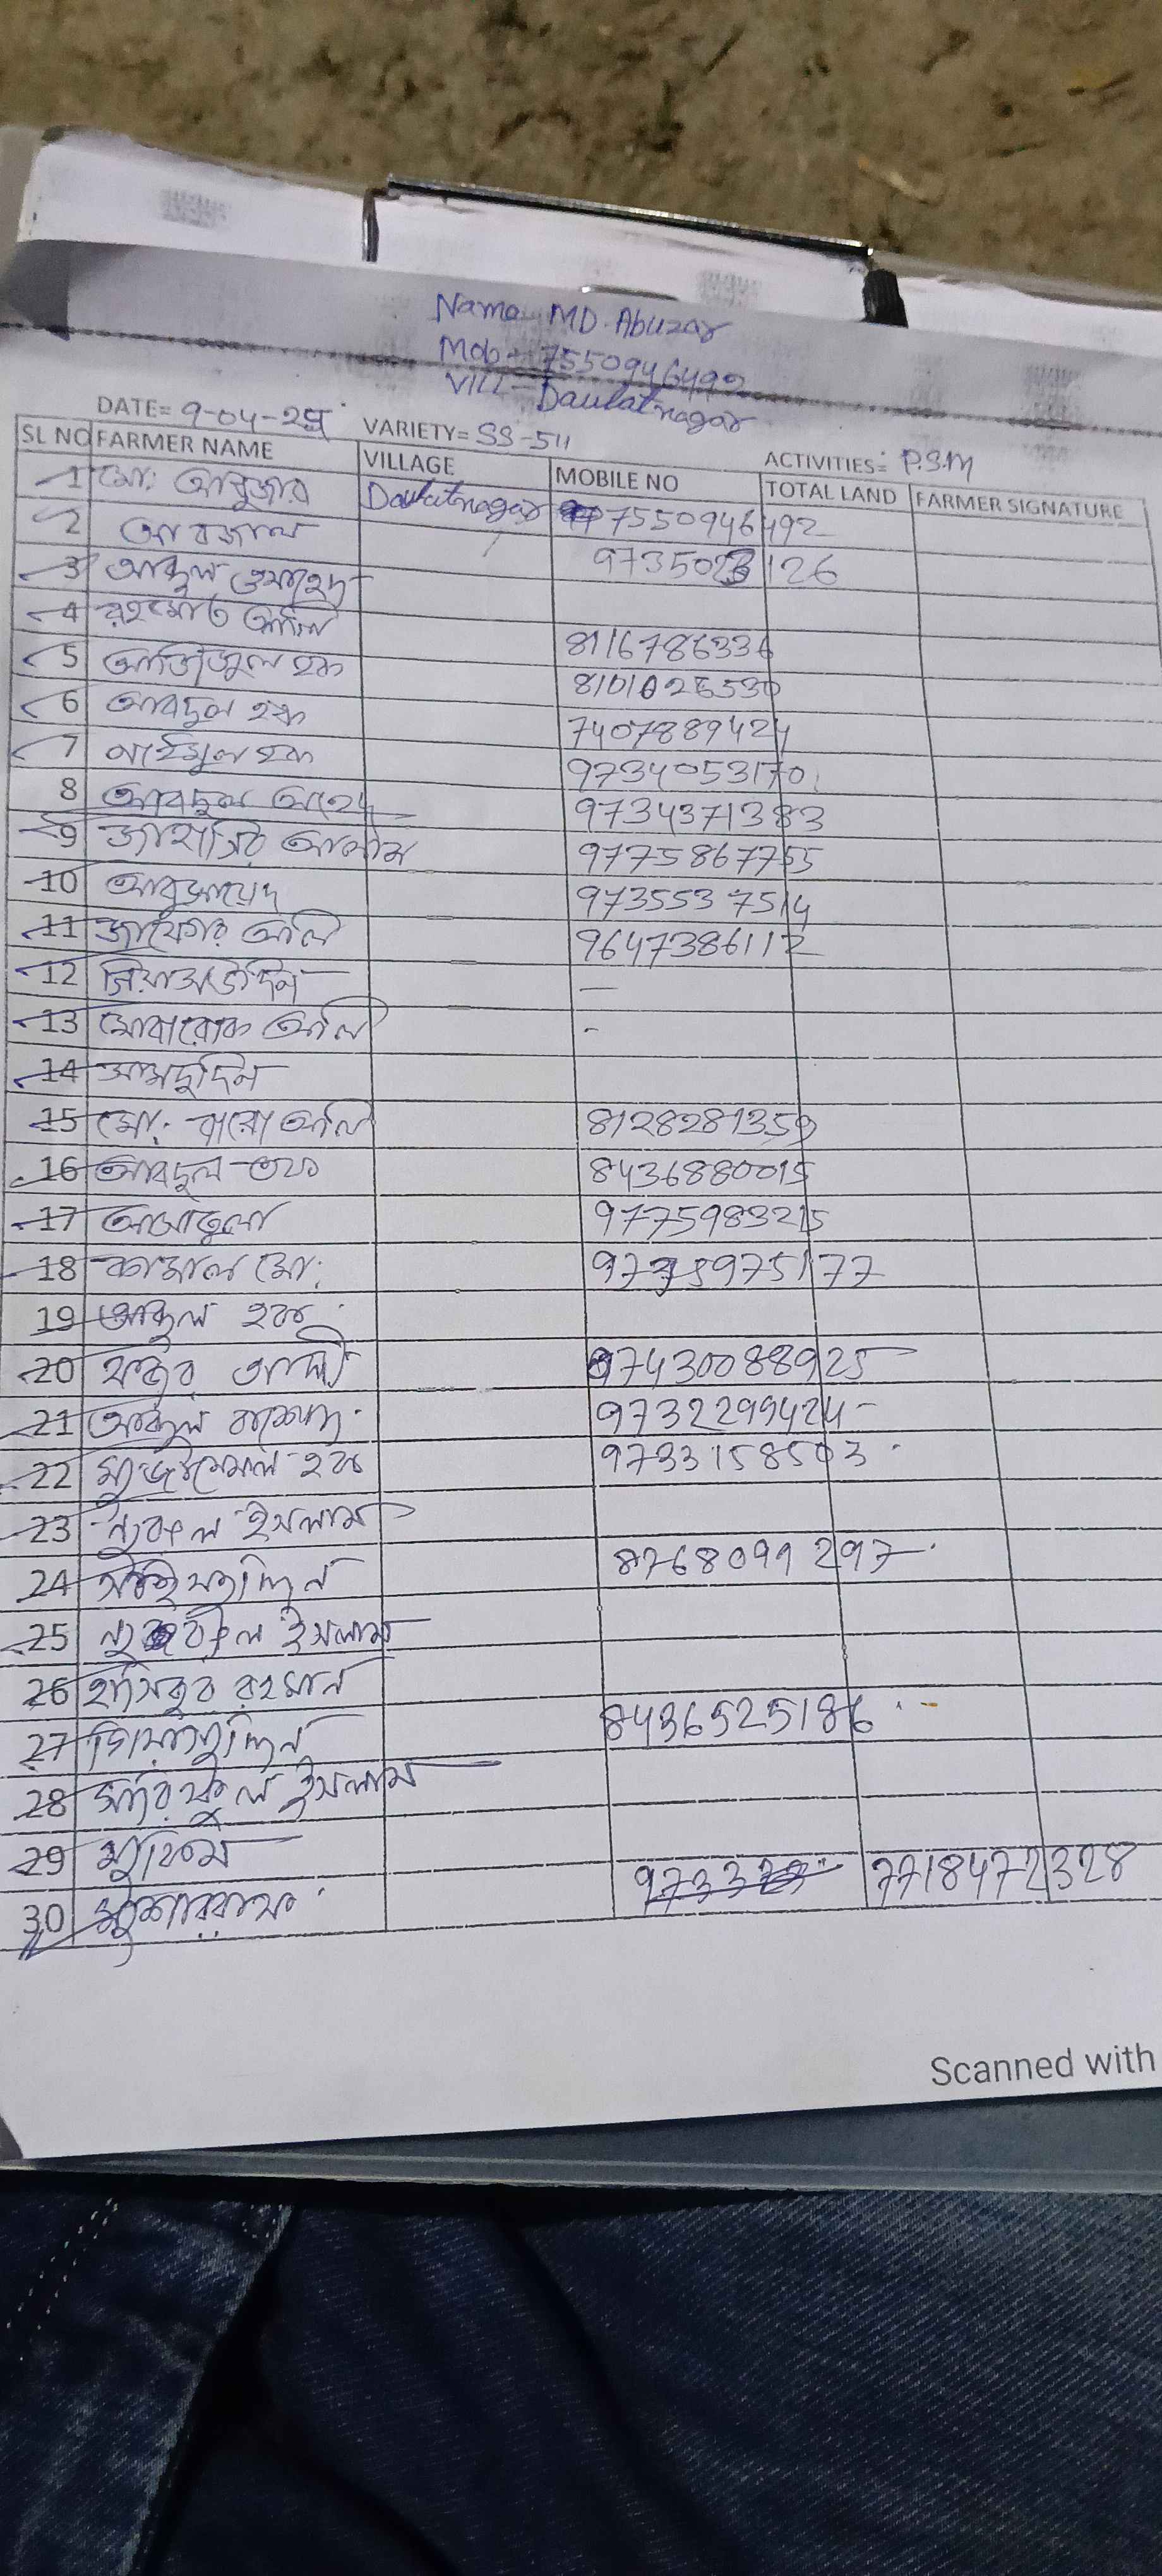 Name - MD. Abuzar
Mob - 7550946492
VILL - Daulatnagar
DATE= 9-04-25 VARIETY= SS-511 ACTIVITIES= P.S.M
SL NO FARMER NAME VILLAGE MOBILE NO TOTAL LAND FARMER SIGNATURE
1 মো: আবুজার Daulatnagar 7550946492
2 আবজাল 9735023126
3 আব্দুল ওয়াহেদ
4 রহমোত আলি 8116786336
5 আজিজুল হক 8101026530
6 আবদুল হক 7407889424
7 নাইমুল হক 9734053170
8 আবদুল আহেদ 9734371383
9 জাহাঙ্গির আলাম 9775867755
10 আবুসায়েদ 9735537514
11 জাফের আলি 9647386112
12 জিয়াউদ্দিন —
13 মোবারোক আলি -
14
15 মো: বারো আলি 8128281359
16 আবদুল 8436880015
17 9775983215
18 কামাল মো: 9735975177
19 আব্দুল হক
20 ফজর আলী 97430088925
21 আব্দুল 9732299424
22 মুজাম্মেল হক 9733158503
23 নুরুল ইসলাম
24 8768099297
25 ইসলাম
26 হাসিবুর রহমান
27 গিয়াসুদ্দিন 8436525186
28 সারিফুল ইসলাম
29 মুকিম
30 মুশাররাফ 97337 7718472328
Scanned with